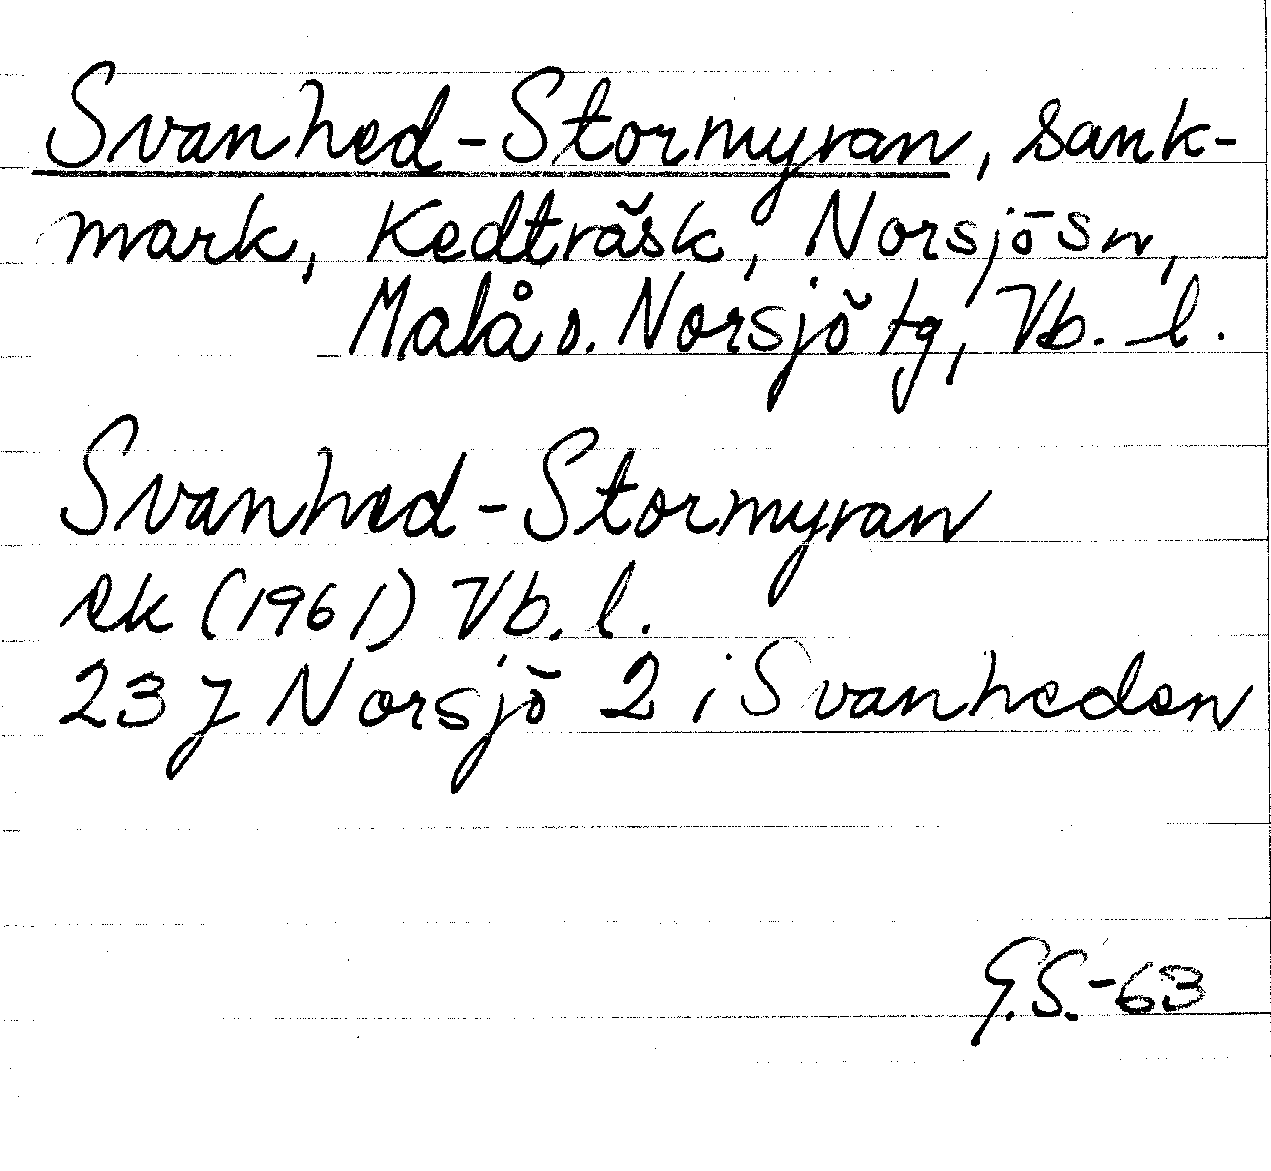 Svanhed-Stormyran, sank-
mark, Kedträsk, Norsjö sn,
Malå o. Norsjö tg, Vb. l.
Svanhed-Stormyran
ek (1961) Vb. l.
23 J Norsjö 2 i Svanheden
G.S.-63